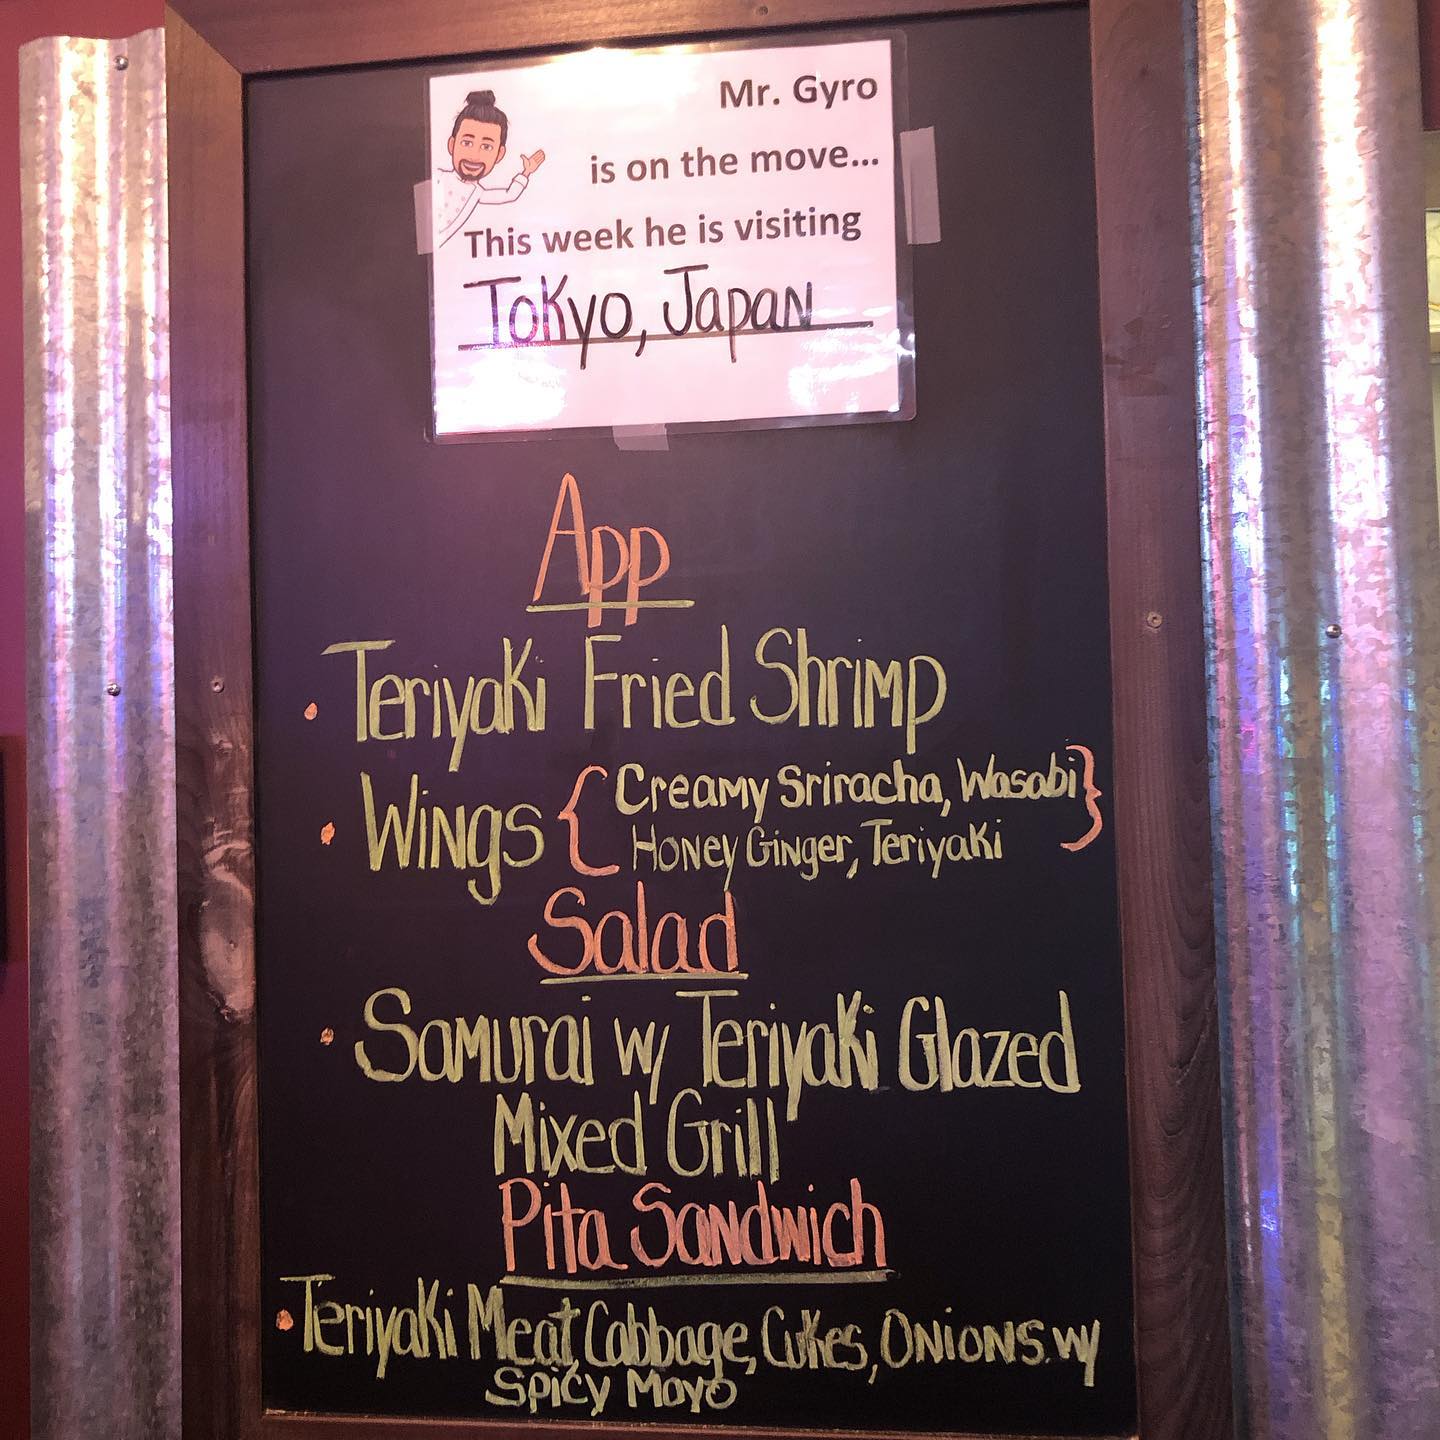 Mr. Gyro
is on the move...
This week he is visiting
Tokyo, Japan
App
• Teriyaki Fried Shrimp
• Wings { Creamy Sriracha, Wasabi }
Honey Ginger, Teriyaki
Salad
• Samurai w/ Teriyaki Glazed
Mixed Grill
Pita Sandwich
• Teriyaki Meat, Cabbage, Cukes, Onions w/
Spicy Mayo